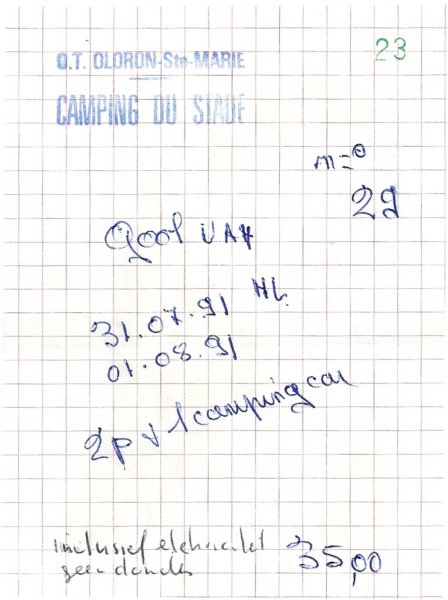 O.T. OLORON-Ste-MARIE
23
CAMPING DU STADE
n=º
29
31.07.91 HL
01.08.91
2p + 1 campingcar
inclusief elektriciteit
geen douches
35,00